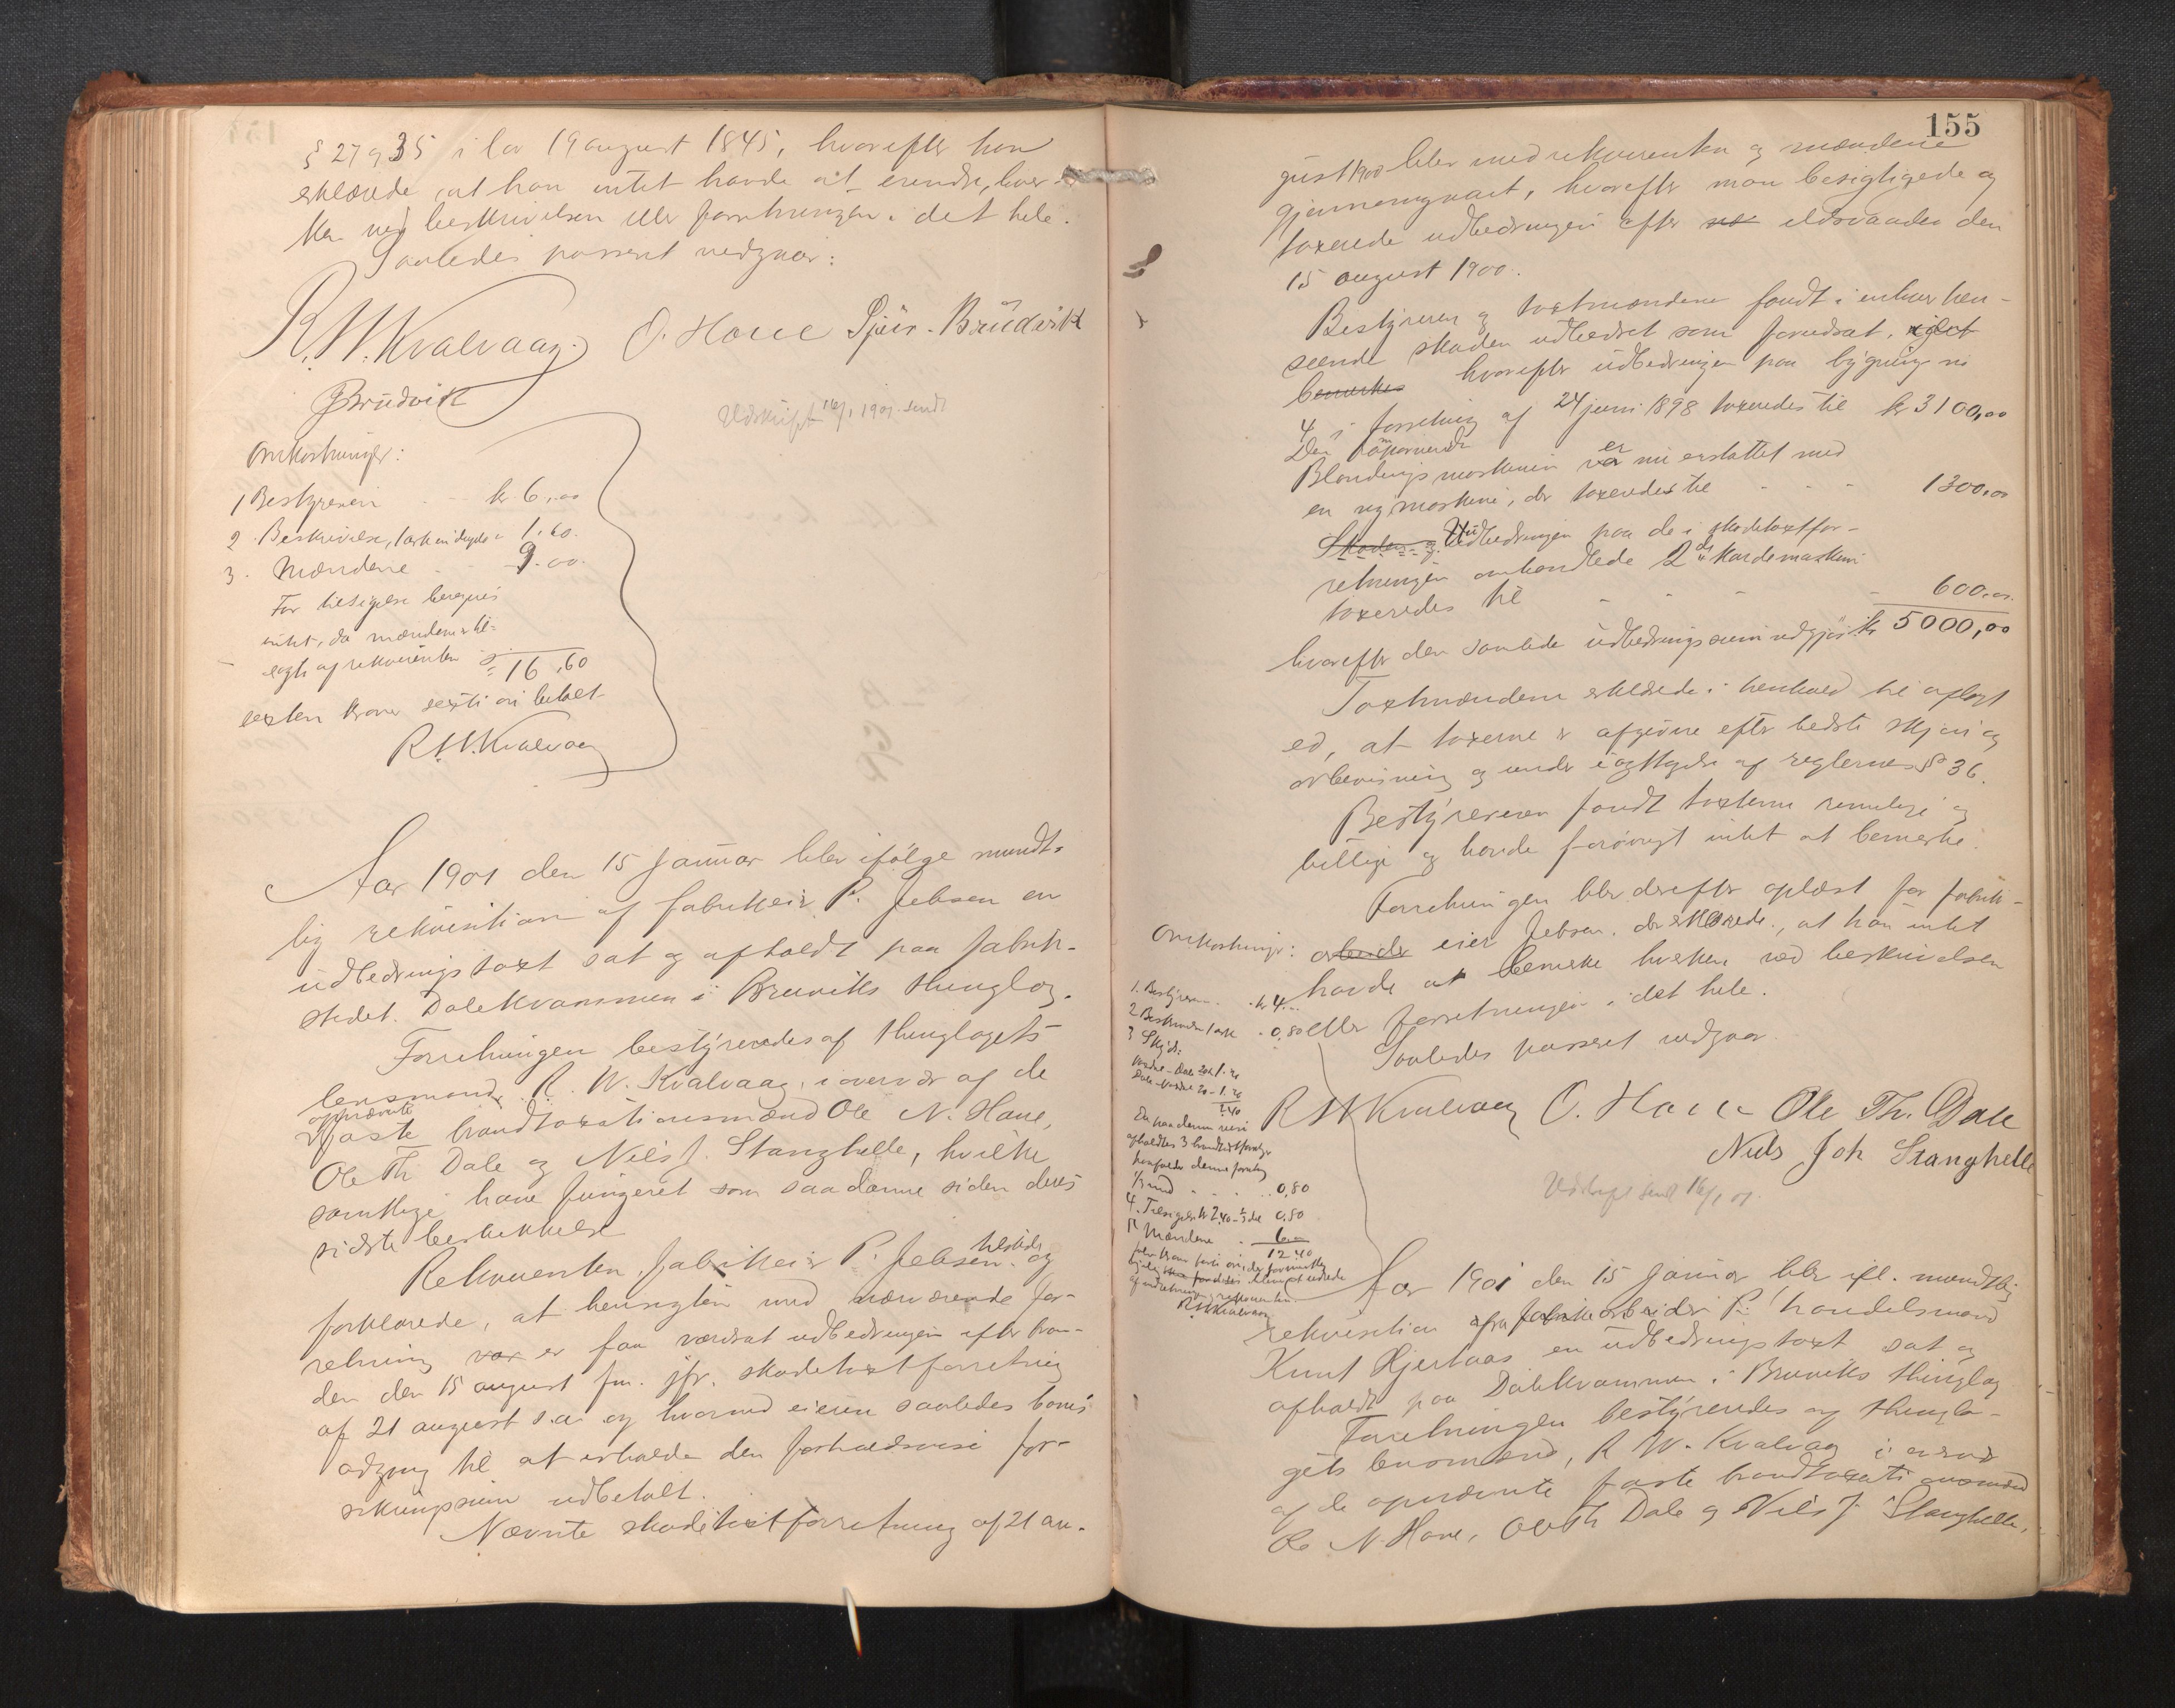 § 27 og 35 i lov 19 august 1845, hvorefter han
erklærede, at han intet havde at erindre, hver-
ken ved beskrivelsen eller forretningen i det hele.
Saaledes passeret vedgaar:
R. W. Kvalvaag. O. Hove Sjur. Brudvik
Brudvik
Udskrift 16/1 1901 sendt
Omkostninger:
1 Bestyreren kr 6,00
2. Beskrivelse, 1 ark 1.60.
3. Mændene 9.00.
For tilsigelse beregnes
intet, da mændene er til-
sagt af rekvirenten
16,60
sexten kroner sexti øri betalt
R. W. Kvalvaag
Aar 1901 den 15 januar blev ifølge mundt-
lig rekvisition af fabrikeier P. Jebsen en
udbedringstaxt sat og afholdt paa fabrik-
stedet. Dalekvammen i Bruviks thinglag.
Forretningen bestyredes af thinglagets
lensmand, R. W. Kvalvaag, i overvær af de
opnævnte
faste brandtaxationsmænd Ole N. Hove,
Ole Th Dale og Nils J. Stanghelle, hvilke
samtlige have fungeret som saadanne siden deres
sidste beskikkelse
Rekvirenten, fabrikeier P. Jebsen tilstede og
forklarede, at hensigten med nærværende for-
retning var er faa værdsat udbedringen efter bran-
den den 15 august f.a. jfr. skadetaxtforretning
af 21 august s.a. og hvorved eieren saaledes
adgang til at erholde den forholdsvise for-
sikringssum udbetalt.
Nævnte skadetaxtforretning af 21 au-
155
gust 1900 blev med rekvirenten og mændene
gjennemgaaet, hvorefter man besigtigede og
taxerede udbedringen efter ildsvaaden den
15 august 1900.
Bestyreren og taxtmændene fandt i enhver hen-
seende skaden udbedret som forudsat, idet
bemærkes hvorefter udbedringen paa bygning no
4 i forretning af 24 juni 1898 taxeredes til kr 3100,00
Den
Blandingsmaskinen var er nu erstattet med
en ny maskine, der taxeredes til - - - 1300,00
Skaden og Udbedringen paa de i skadetaxtfor-
retningen omhandlede 2de kardemaskiner
taxeredes til - - - 600,00.
hvorefter den samlede udbedringssum udgjør kr 5000,00
Taxtmændene erklærede i henhold til aflagt
ed, at taxterne er afgivne efter bedste skjøn og
overbevisning og under iagttagelse af reglernes § 36.
Bestyreren fandt taxterne rimelige og
billige og havde forøvrigt intet at bemerke.
Forretningen blev derefter oplæst for fabrik-
arbeider eier Jebsen, der erklærede, at han intet
havde at bemerke hverken ved beskrivelsen
eller forretningen i det hele.
Saaledes passeret vedgaar.
Omkostninger:
1. Bestyreren kr 4.
2 Beskrivelse 1 ark 0,80
3 Skyds:
Dale 20 1.20
Dale 20 1.20
2.40
afholdtes 3
denne forretning
1/3 med 0,80
4. Tilsigelse kr 2,40 1/3 del 0,80
Mændene 6.00
12.40
R. W. Kvalvaag
R W Kvalvaag O. Hove Ole Th. Dale
Nils Joh Stanghelle
Udskrift sendt 16/1 01.
Aar 1901 den 15 januar blev ifl. mundtlig
rekvisition fra fabrikarbeider P. handelsmand
Knut Hjertaas en udbedringstaxt sat og
afholdt paa Dalekvammen i Bruviks thinglag
Forretningen bestyredes af thingla-
gets lensmand, R W. Kvalvaag i overvær
af de opnævnte faste brandtaxationsmænd
Ole N. Hove, Ole Th Dale og Nils J. Stanghelle,